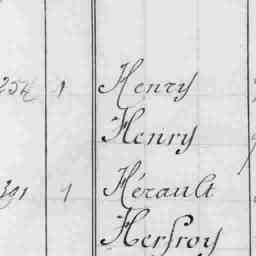 1 Henry
Henry
391 1 Hérault
Herfroy